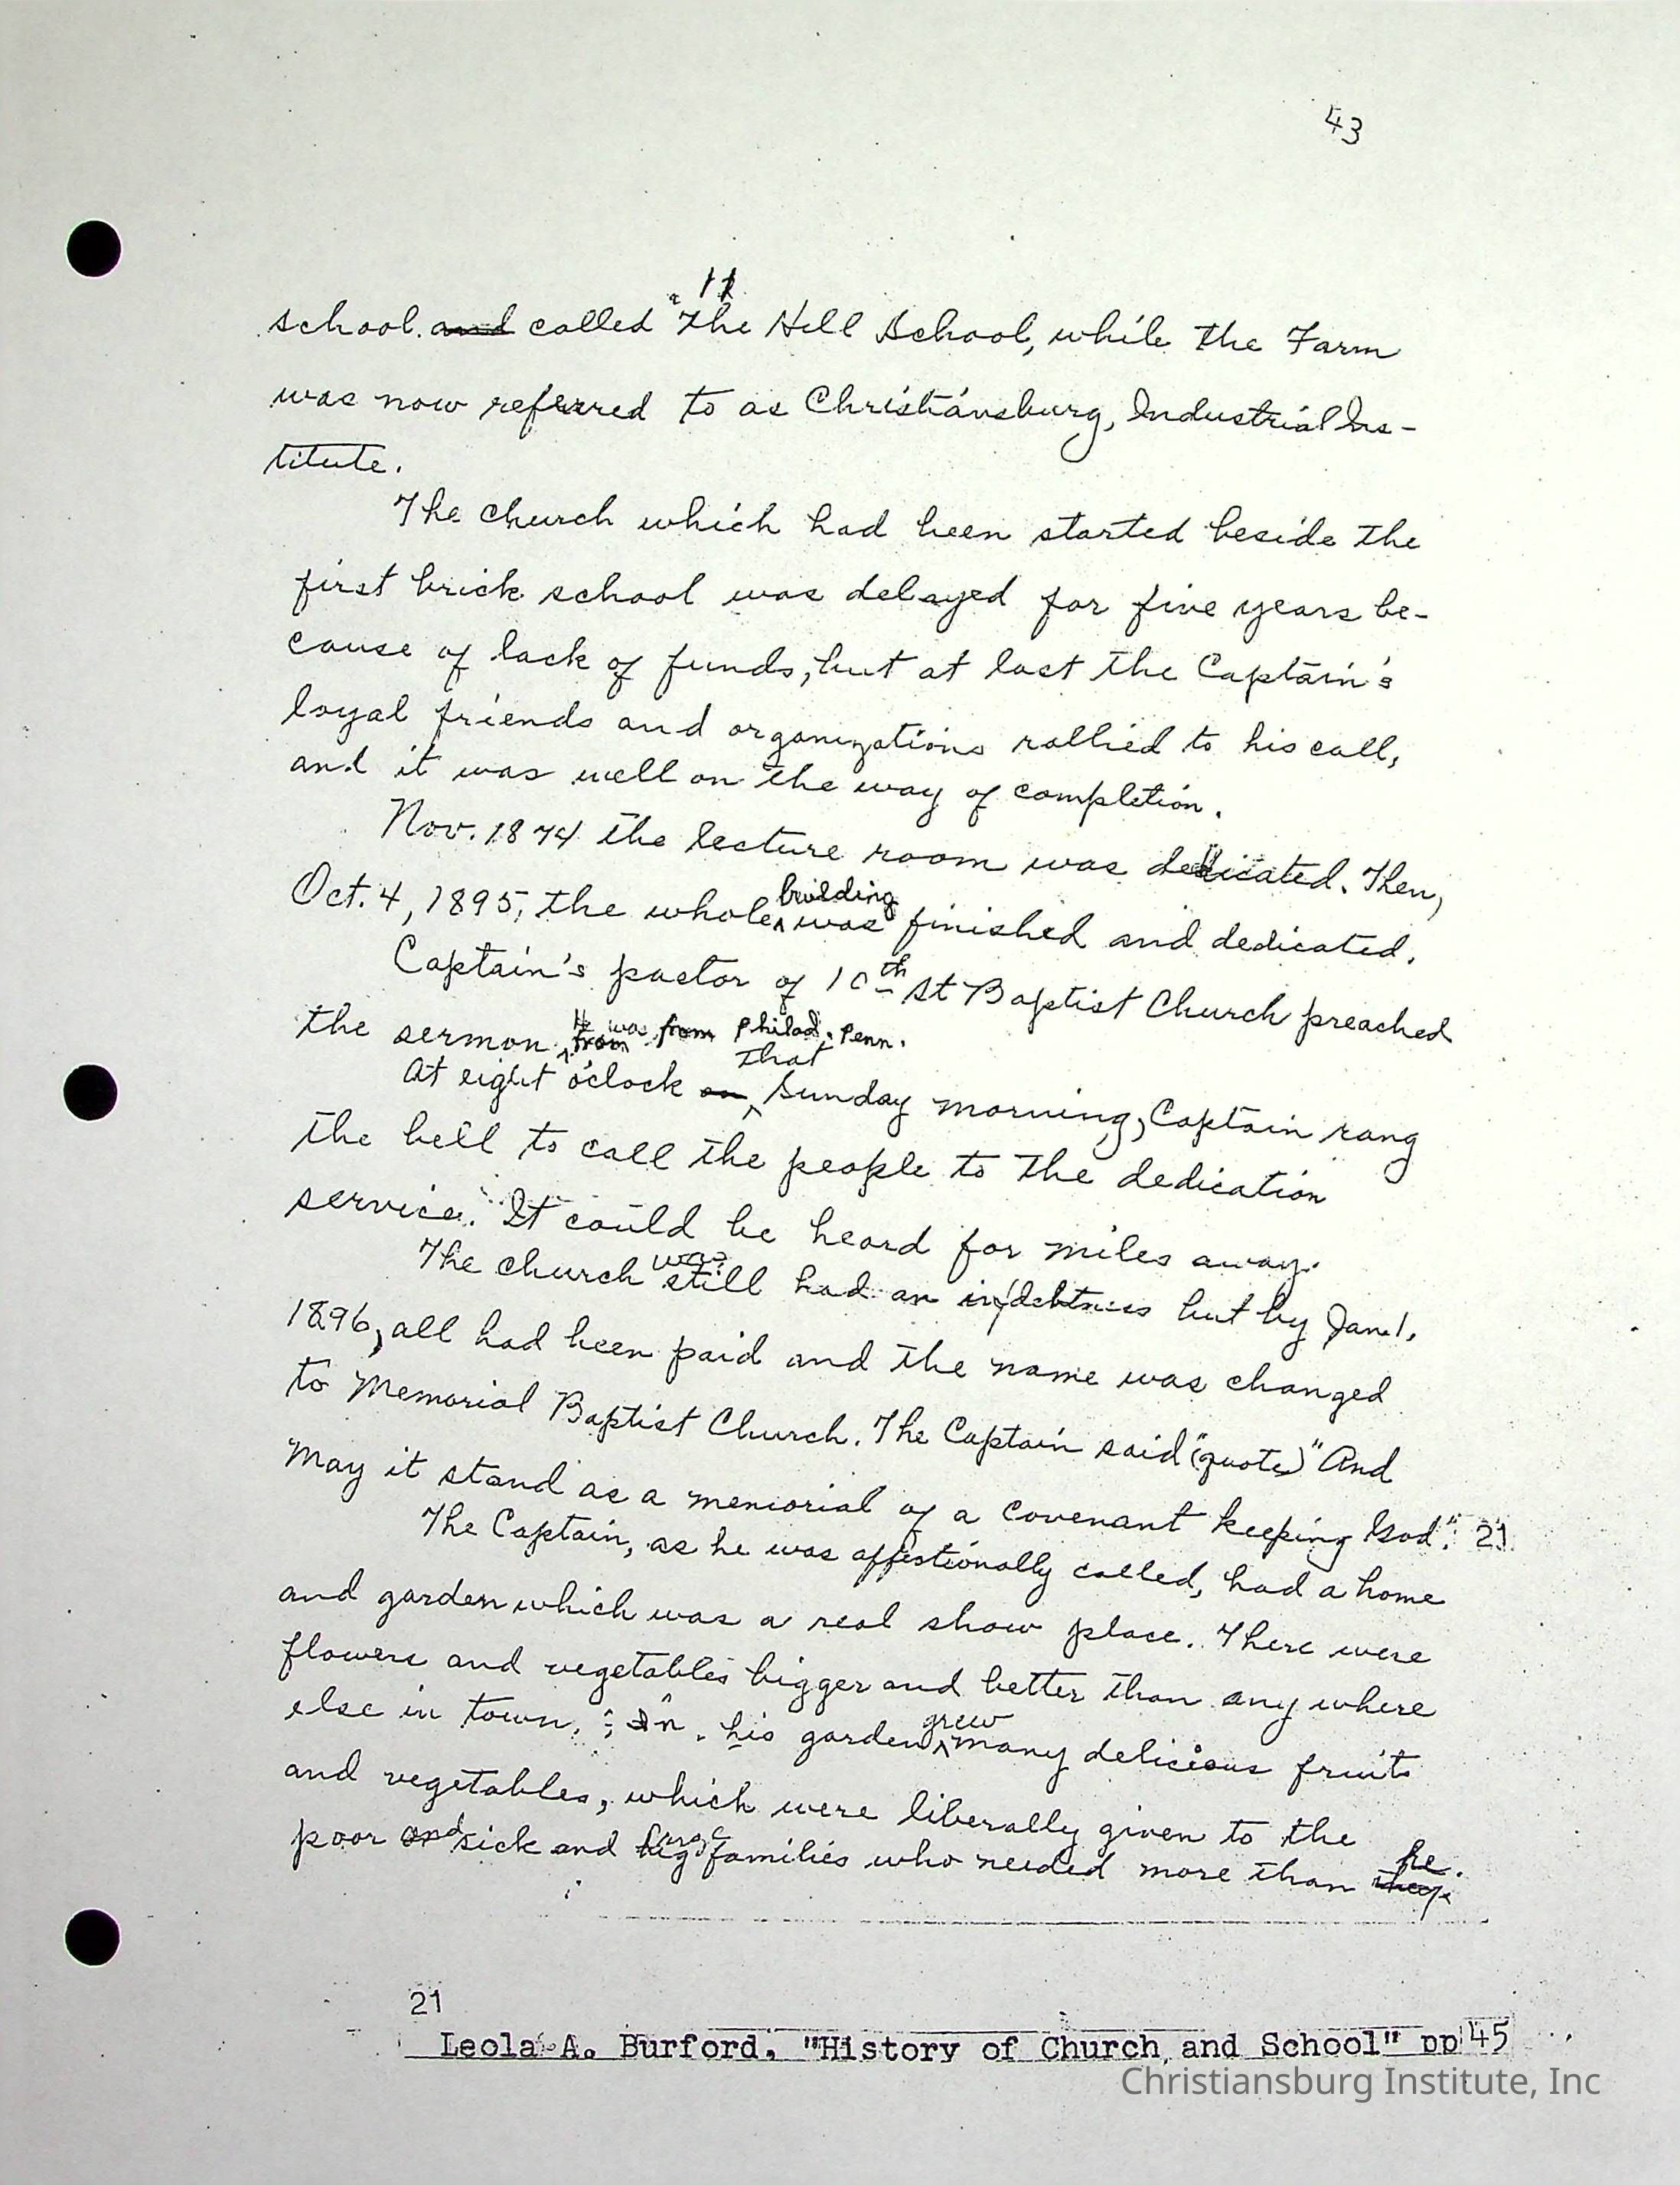 43
school. and called "The Hill School, while the Farm
was now referred to as Christiansburg, Industrial Ins-
titute.
The church which had been started beside the
first brick school was delayed for five years be-
cause of lack of funds, but at last the Captain's
loyal friends and organizations rallied to his call,
and it was well on the way of completion.
Nov. 1874 the lecture room was dedicated. Then,
Oct. 4, 1895, the whole building was finished and dedicated.
Captain's pastor of 10th St Baptist Church preached
the sermon. He was from Philad. Penn.
At eight o'clock on that Sunday morning, Captain rang
the bell to call the people to the dedication
service. It could be heard for miles away.
The church was still had an in debtness but by Jan. 1,
1896, all had been paid and the name was changed
to Memorial Baptist Church. The Captain said (quote) "And
May it stand as a memorial of a Covenant keeping God". 21
The Captain, as he was affectionally called, had a home
and garden which was a real show place. There were
flowers and vegetables bigger and better than any where
else in town, ; In his garden grew many delicious fruits
and vegetables, which were liberally given to the
poor and sick and big large families who needed more than they he.
21
Leola A. Burford, "History of Church and School" pp 45
Christiansburg Institute, Inc